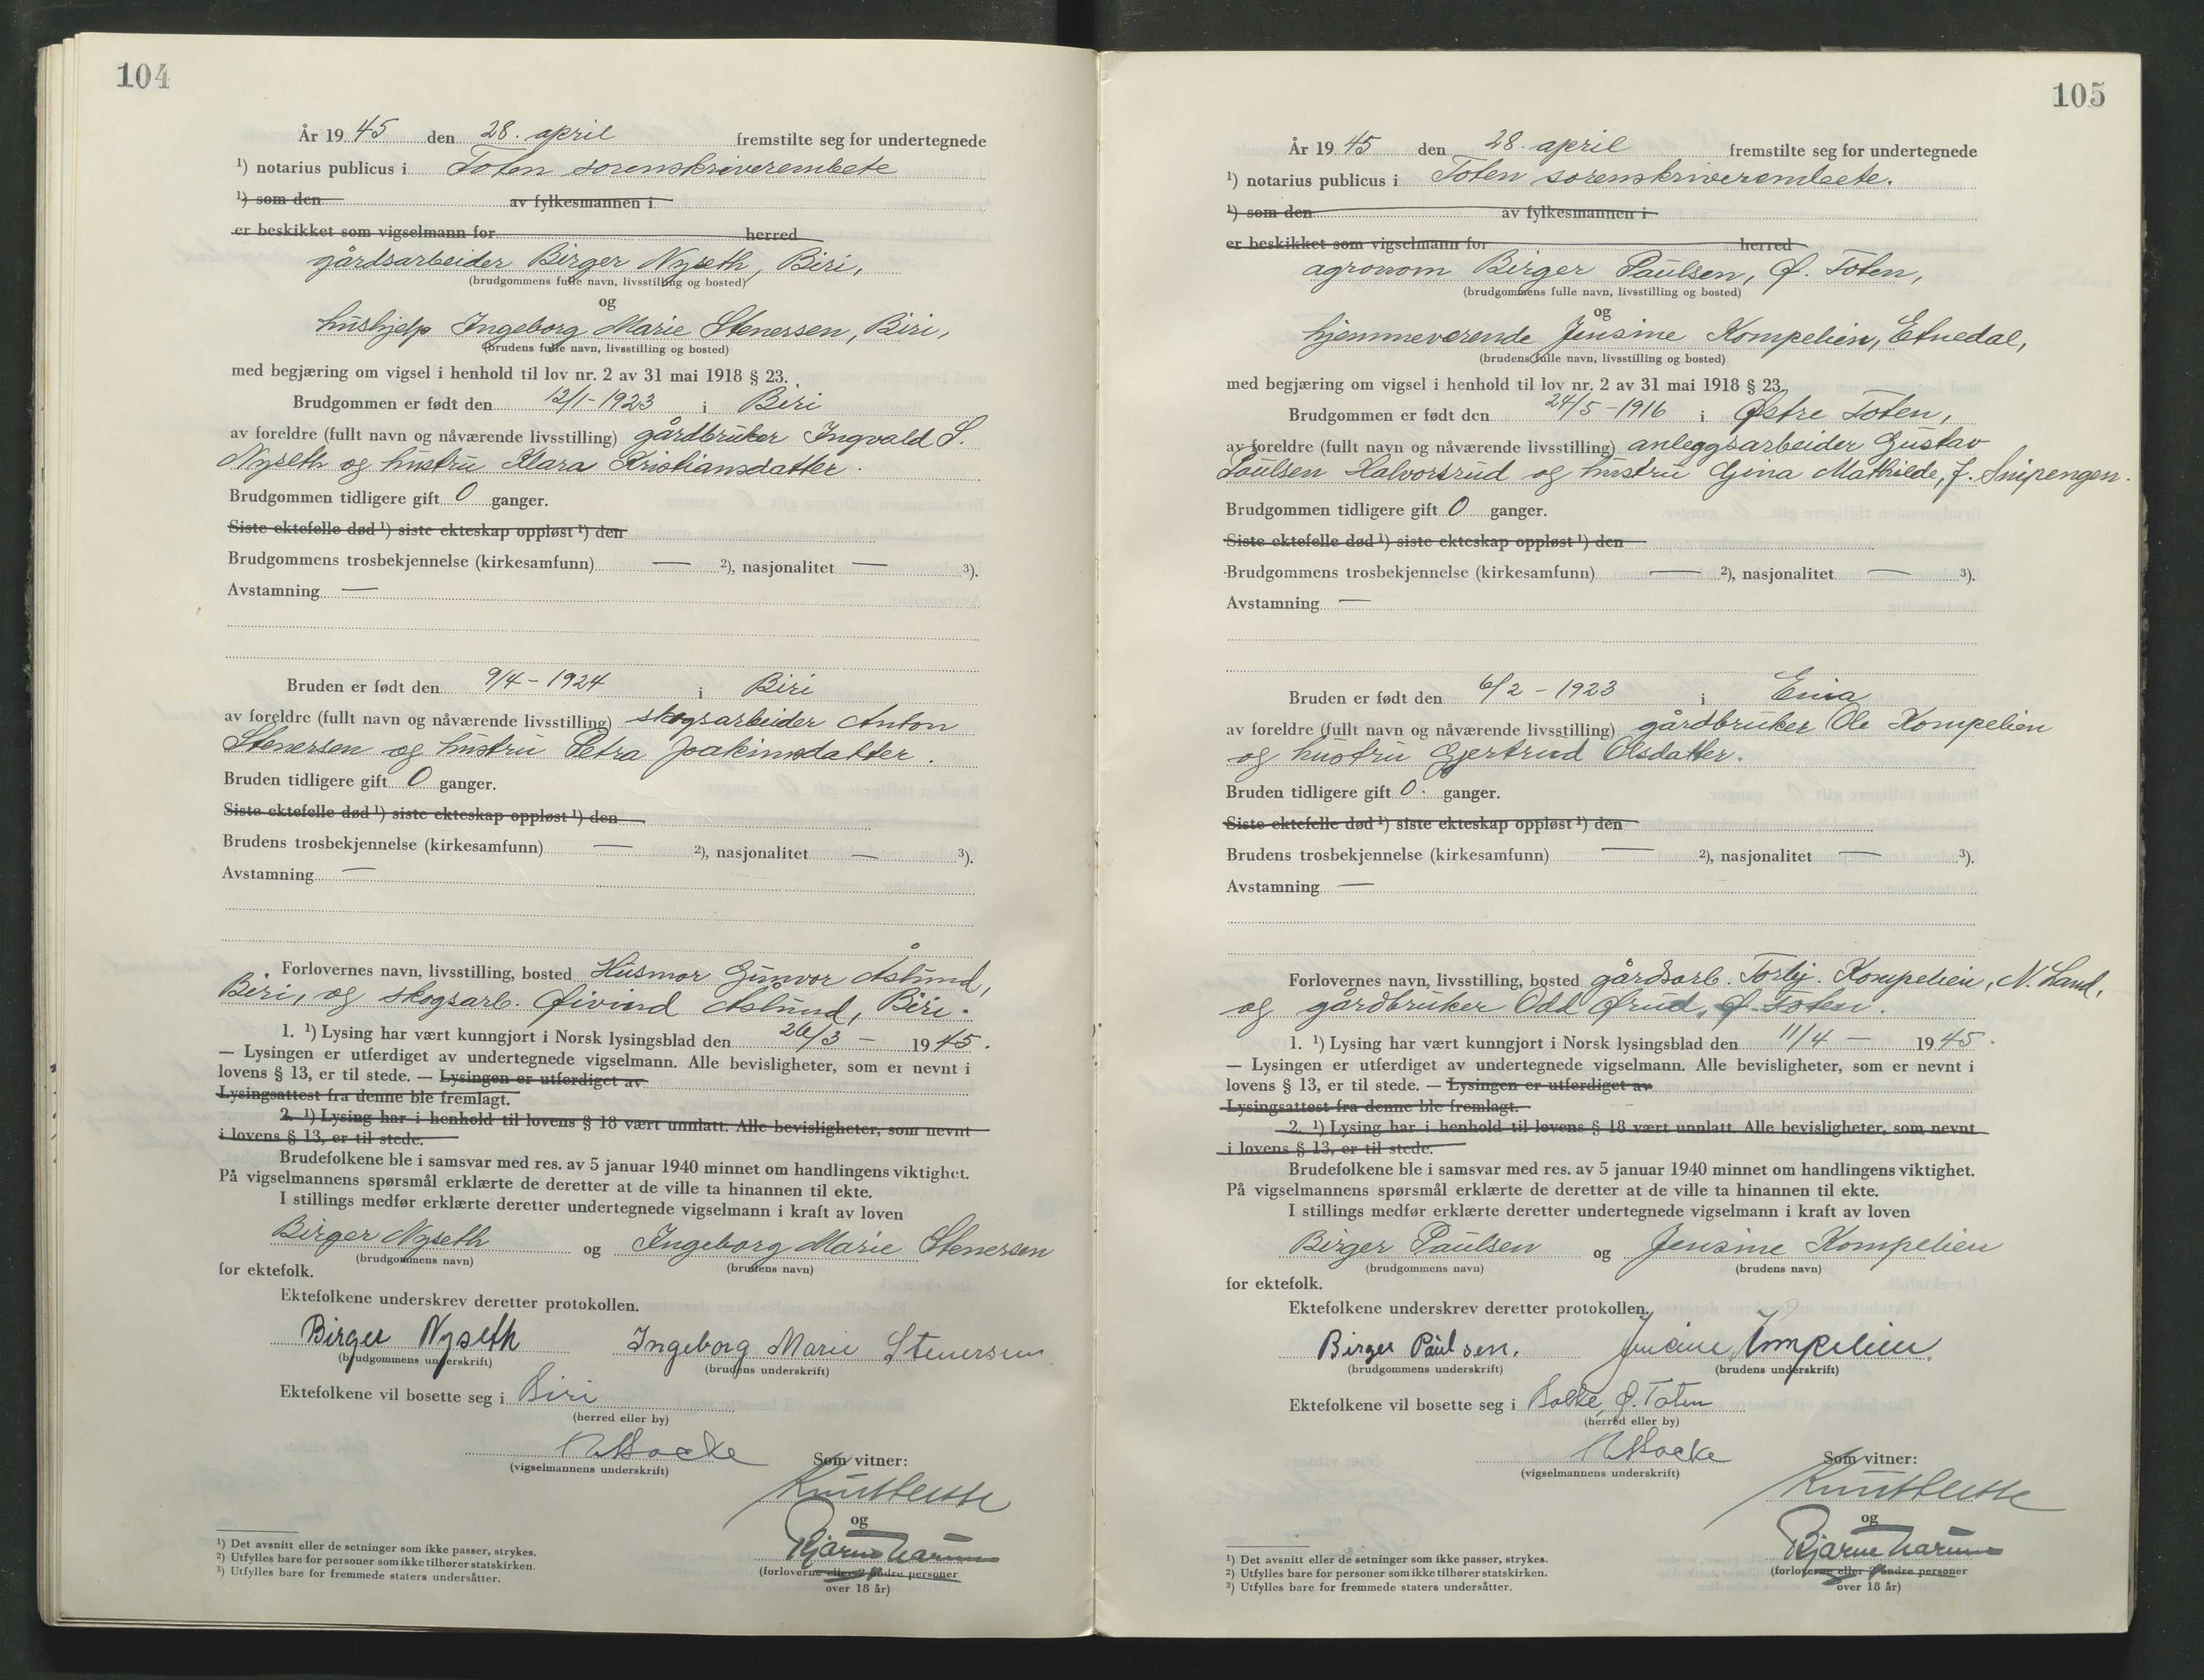 104
År 1945 den 28. april fremstilte seg for undertegnede
¹) notarius publicus i Toten sorenskriverembete
¹) som den av fylkesmannen i
er beskikket som vigselmann for herred
gårdsarbeider Birger Nyseth, Biri,
(brudgommens fulle navn, livsstilling og bosted)
og
hushjelp Ingeborg Marie Stenersen, Biri,
(brudens fulle navn, livsstilling og bosted)
med begjæring om vigsel i henhold til lov nr. 2 av 31 mai 1918 § 23.
Brudgommen er født den 12/1-1923 i Biri
av foreldre (fullt navn og nåværende livsstilling) gårdbruker Ingvald S.
Nyseth og hustru Klara Kristiansdatter.
Brudgommen tidligere gift 0 ganger.
Siste ektefelle død ¹) siste ekteskap oppløst ¹) den
Brudgommens trosbekjennelse (kirkesamfunn) — ²), nasjonalitet — ³).
Avstamning —
Bruden er født den 9/4-1924 i Biri
av foreldre (fullt navn og nåværende livsstilling) skogsarbeider Anton
Stenersen og hustru Petra Joakimsdatter.
Bruden tidligere gift 0 ganger.
Siste ektefelle død ¹) siste ekteskap oppløst ¹) den
Brudens trosbekjennelse (kirkesamfunn) — ²), nasjonalitet — ³).
Avstamning —
Forlovernes navn, livsstilling, bosted Husmor Gunvor Åslund,
Biri, og skogsarb. Øivind Åslund, Biri.
1. ¹) Lysing har vært kunngjort i Norsk lysingsblad den 26/3 — 1945.
— Lysingen er utferdiget av undertegnede vigselmann. Alle bevisligheter, som er nevnt i
lovens § 13, er til stede. — Lysingen er utferdiget av
Lysingsattest fra denne ble fremlagt.
2. ¹) Lysing har i henhold til lovens § 18 vært unnlatt. Alle bevisligheter, som nevnt
i lovens § 13, er til stede.
Brudefolkene ble i samsvar med res. av 5 januar 1940 minnet om handlingens viktighet.
På vigselmannens spørsmål erklærte de deretter at de ville ta hinannen til ekte.
I stillings medfør erklærte deretter undertegnede vigselmann i kraft av loven
Birger Nyseth og Ingeborg Marie Stenersen
(brudgommens navn) (brudens navn)
for ektefolk.
Ektefolkene underskrev deretter protokollen.
Birger Nyseth Ingeborg Marie Stenersen
(brudgommens underskrift) (brudens underskrift)
Ektefolkene vil bosette seg i Biri
(herred eller by)
(vigselmannens underskrift)
Som vitner:
og
Bjarne
(forloverne eller 2 andre personer
over 18 år)
¹) Det avsnitt eller de setninger som ikke passer, strykes.
²) Utfylles bare for personer som ikke tilhører statskirken.
³) Utfylles bare for fremmede staters undersåtter.
105
År 1945 den 28. april fremstilte seg for undertegnede
¹) notarius publicus i Toten sorenskriverembete.
¹) som den av fylkesmannen i
er beskikket som vigselmann for herred
agronom Birger Paulsen, Ø. Toten,
(brudgommens fulle navn, livsstilling og bosted)
og
hjemmeværende Jensine Kompelien, Etnedal,
(brudens fulle navn, livsstilling og bosted)
med begjæring om vigsel i henhold til lov nr. 2 av 31 mai 1918 § 23.
Brudgommen er født den 24/5-1916 i Østre Toten,
av foreldre (fullt navn og nåværende livsstilling) anleggsarbeider Gustav
Paulsen Halvorsrud og hustru Gina Mathilde, f. Snipengen.
Brudgommen tidligere gift 0 ganger.
Siste ektefelle død ¹) siste ekteskap oppløst ¹) den
Brudgommens trosbekjennelse (kirkesamfunn) — ²), nasjonalitet — ³).
Avstamning —
Bruden er født den 6/2-1923 i Eina
av foreldre (fullt navn og nåværende livsstilling) gårdbruker Ole Kompelien
og hustru Gjertrud Olsdatter.
Bruden tidligere gift 0. ganger.
Siste ektefelle død ¹) siste ekteskap oppløst ¹) den
Brudens trosbekjennelse (kirkesamfunn) — ²), nasjonalitet — ³).
Avstamning —
Forlovernes navn, livsstilling, bosted gårdsarb. Torbj. Kompelien, N. Land,
og gårdbruker Odd Ørud, Ø. Toten.
1. ¹) Lysing har vært kunngjort i Norsk lysingsblad den 11/4 — 1945.
— Lysingen er utferdiget av undertegnede vigselmann. Alle bevisligheter, som er nevnt i
lovens § 13, er til stede. — Lysingen er utferdiget av
Lysingsattest fra denne ble fremlagt.
2. ¹) Lysing har i henhold til lovens § 18 vært unnlatt. Alle bevisligheter, som nevnt
i lovens § 13, er til stede.
Brudefolkene ble i samsvar med res. av 5 januar 1940 minnet om handlingens viktighet.
På vigselmannens spørsmål erklærte de deretter at de ville ta hinannen til ekte.
I stillings medfør erklærte deretter undertegnede vigselmann i kraft av loven
Birger Paulsen og Jensine Kompelien
(brudgommens navn) (brudens navn)
for ektefolk.
Ektefolkene underskrev deretter protokollen.
Birger Paulsen. Jensine Kompelien
(brudgommens underskrift) (brudens underskrift)
Ektefolkene vil bosette seg i Bølke, Ø. Toten
(herred eller by)
(vigselmannens underskrift)
Som vitner:
og
Bjarne
(forloverne eller 2 andre personer
over 18 år)
¹) Det avsnitt eller de setninger som ikke passer, strykes.
²) Utfylles bare for personer som ikke tilhører statskirken.
³) Utfylles bare for fremmede staters undersåtter.